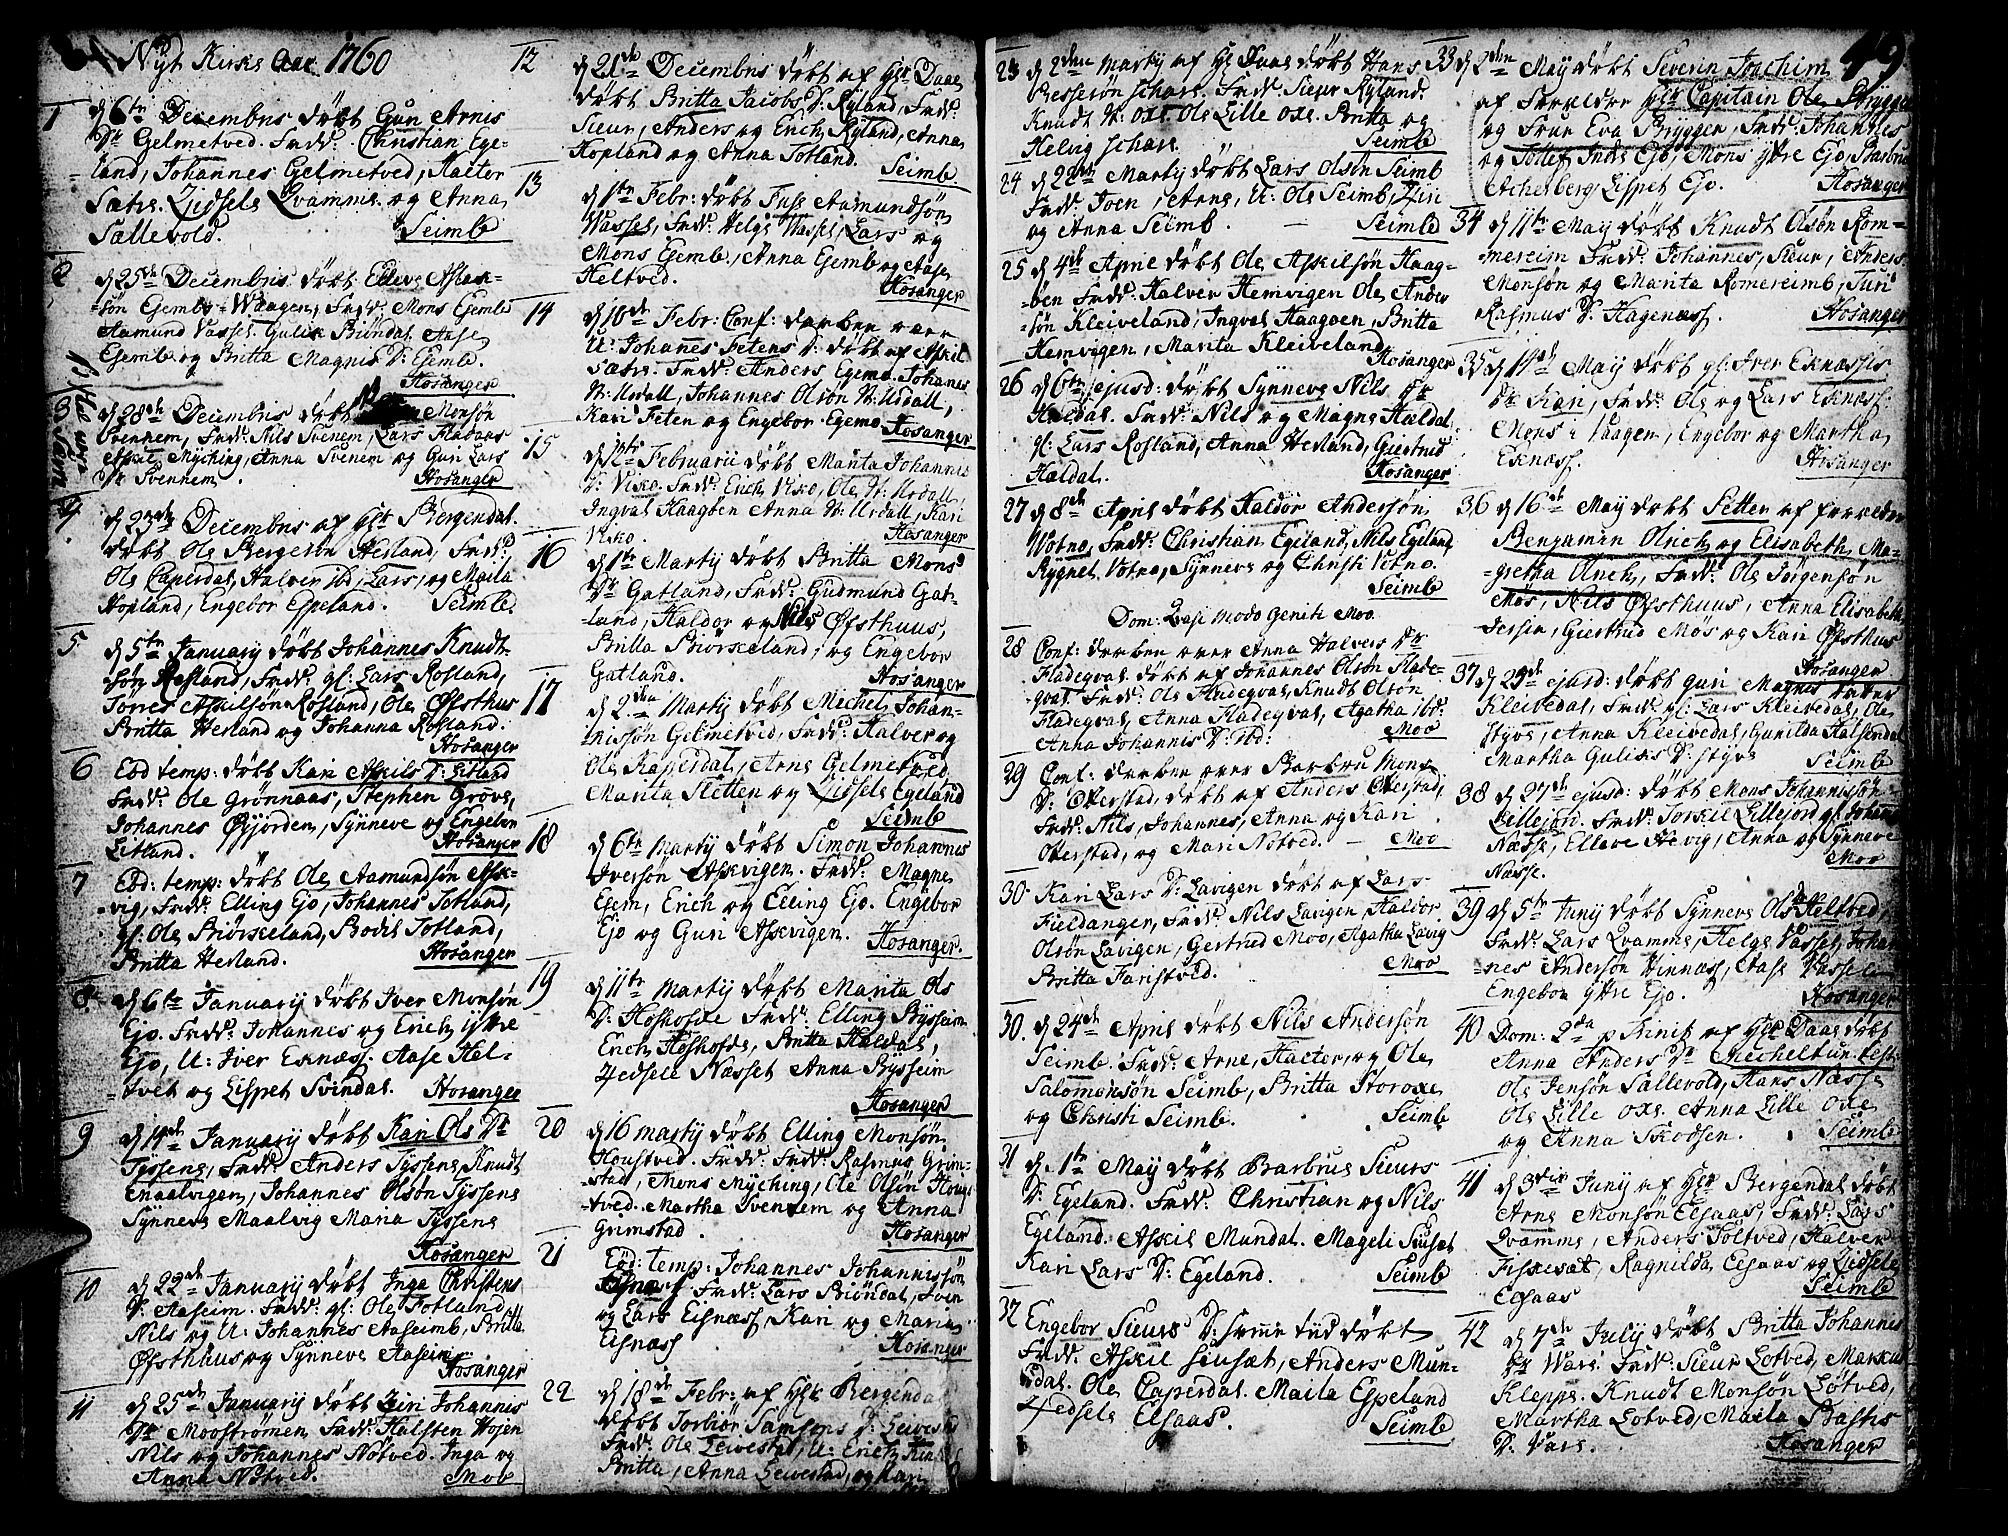 Nÿt Kirke Aar 1760
1 d 6te Decembris döbt Guri Arnis
Dr Gelmetved. Fadd: Christian Ege-
land, Johannes Gelmetved, Hactor
Sætre. Zidsele Qvamme og Anna
Sællevold. Seimb
2 d 25de Decembris döbt Elleve
-sön Egemb Waagen, Fadd: Mons Egemb
Aamund Vassel Gulik Biöndal Aase
Egemb og Britta Magnis D: Egemb.
Hosanger
3 d 28de Decembris döbt Monsön
Svennem, Fadd: Nils Svenem, Lars
Askil Mÿching, Anna Svenem og Guri Lars
Dr Svennem. Hosanger
4 d 23de Decembris af Hr Bergendal
döbt Ole Bergesön Herland, Fadd:
Ole Caperdal, Halver ibd, Lars, og Maila
Hopland, Engebor Espeland. Seimb.
5 d 5te Januarÿ döbt Johannes Knudt-
sön Rosland, Fadd: gl: Lars Rosland,
Törres Askilsön Rosland, Ole Öfsthus
Britta Herland og Johanna Rosland.
Hosanger
6 Eod temp: döbt Kari Askils D: Litland
Fadd: Ole Grönnaas, Stephen Grove,
Johannes Öÿjorden, Sÿnneve og Engebor
Litland. Hosanger
7 Eod: temp: döbt Ole Aamundsön Ask-
vig, Fadd: Elling Ejo, Johannes Totland,
gl: Ole Biörkeland, Bodil Totland,
Britta Herland. Hosanger
8 d 6te Januarÿ döbt Iver Monsön
Ejo. Fadd: Johannes og Erich ÿttre
Ejo, U: Iver Eknæss. Aase Hel-
-tvet og Lispet Svindal. Hosanger
9 d 14de Januarÿ döbt Kari Ols Dr
Tÿssene, Fadd: Anders Tÿssene, Knudt
Maalvigen, Johannes Olsön Tÿssene
Sÿnneve Maalvig Maria Tÿssene
Hosanger
10 d 22de Januarÿ döbt Inga Christens
D: Aaseim. Fadd: gl: Ole Totland,
Nils og U: Johannes Aaseimb, Britta
Öfsthuus og Sÿnneve Aaseim
Hosanger
11 d 25de Januarÿ döbt Ziri Johannis
Dr Mooströmen, Fadd: Halsten Hojen
Nils og Johannes Nötved. Inga og
Anna Nötved. Moo
12 d 21de Decembris döbt af Hr Daae
döbt Britta Jacobs D: Rÿland, Fadd:
Sieur, Anders og Erich Rÿland, Anna
Hopland og Anna Totland.
Seimb.
13 d 1te Febr: döbt Fuse Aamundsön
Wassel, Fadd: Helge Wassel, Lars og
Mons Egemb, Anna Egemb og Aase
Heltved. Hosanger
14 d 10de Febr: Conf: daaben over
U: Johannes Fetens D: döbt af Askil
Sætre. Fadd: Anders Egemo. Johanes
N: Urdall, Johannes Olsön N: Urdall,
Kari Feten og Engebor Egemo. Hosanger
15 d Februarii döbt Marita Johannis
D: Viko Fadd: Erich Viko, Ole N: Urdall,
Ingval Haagben Anna N: Urdall, Kari
Viko. Hosanger
16 d 1te Martÿ döbt Britta Mons
Dr Gatland, Fadd: Gudmund Gat-
-land, Haldor og Nils Öfsthuus,
Britta Biörkeland, og Engebor
Gatland. Hosanger
17 d 2den Martÿ döbt Michel Johan-
nissön Gelmetved, Fadd: Halver og
Ole Kaperdal, Arne Gelmetved
Marita Sletten og Zidsele Egeland
Seimb
18 d 6te Martÿ döbt Simon Johannes
Iversön Askvigen. Fadd: Magne
Egem, Erich og Elling Ejo. Engebor
Ejo og Guri Askvigen. Hosanger.
19 d 11te Martÿ döbt Marita Ols
D: Hoskofde Fadd: Elling Bÿsseim
Erich Hoskofde, Britta Haldal,
Zedsele Næsset Anna Bÿsseim
Hosanger
20 d 16 Martÿ döbt Elling Monsön
Houstved. Fadd: Fadd: Rasmus Grim-
stad, Mons Mÿching, Ole Olsön Houg-
-tved. Martha Svennem og Anna
Grimstad. Hosanger
21 Eod: temp: Johannes Johannissön
Fadd: Lars Biöndal, Iver
og Lars Eisnæss, Kari og Maria
Eisnæss. Hosanger
22 d 18de Febr: af Hr Bergendal
döbt Torbiör Samsons D: Leivestad
Fadd: Ole Leivestad, U: Erich
Britta, Anna Leivestad, og Kari
49
23 d 2den Martÿ af Hr Daae döbt Hans
Bessesön Fadd: Sieur Rÿland.
Knudt N: Oxe. Ole Lille Oxe. Britta og
Helvig Seimb
24 d 22de Martÿ döbt Lars Olsön Seimb
Fadd: Joen, Arne, U: Ole Seimb, Ziri
og Anna Seimb. — Seimb
25 d 4de April döbt Ole Askilsön Haag-
-ben Fadd: Halver Hemvigen Ole Ander
-sön Kleiveland, Ingval Haagben, Britta
Hemvigen, Marita Kleiveland,
Hosanger
26 d 6te ejusd: döbt Sÿnneve Nils Dr
Haldal. Fadd: Nils og Magne Haldal
gl: Lars Rosland, Anna Herland, Giertrud
Haldal. Hosanger
27 d 8de April döbt Haldor Andersön
Votno, Fadd: Christian Egeland, Nils Egeland
Brÿgnel Votno, Sÿnneve og Christi Votno.
Seimb
Dom: Qvasi modo Geniti Moo.
28 Conf: daaben over Anna Halvers Dr
Fladeqval döbt af Johannes Olsön Flade-
qval. Fadd: Ole Fladeqval, Knudt Olsön
Fladeqval, Anna Fladeqval, Agatha ibd:
Anna Johannis D: ibd: Moo
29 Conf: daaben over Barbru Mons
D: Okerstad, döbt af Anders Okerstad,
Fadd: Nils, Johannes, Anna og Kari
Okerstad, og Mari Notved. — Moo
30 Kari Lars D: Lavigen döbt af Lars
Fieldanger, Fadd: Nils Lavigen, Haldor
Olsön Lavigen, Gertrud Moo, Agatha Lavig
Britta Faristved. Moo
30. d 24de April döbt Nils Andersön
Seimb. Fadd: Arne, Hactor, og Ole
Salomonsön Seimb, Britta Storoxe
og Christi Seimb. Seimb
31 d. 1te Maÿ döbt Barbrue Sieurs
D: Egeland. Fadd: Christian og Nils
Egeland. Askil Mundal. Mageli Siusæt
Kari Lars D: Egeland. Seimb
32 Engebor Sieurs D: samme tiid döbt
Fadd: Askil Siusæt, Anders Mun-
dal. Ole Caperdal. Maila Espeland
Zedsele Elsaas. Seimb
33 d 2den Maÿ döbt Severin Joachim
af Forældre Hr Capitain Ole Brÿgger
og Frue Eva Brÿgger, Fadd: Johannes
og Tollef Indre Ejo, Mons ÿttre Ejo, Barbru
Acherberg, Lispet Ejo. Hosanger
34 d 11te Maÿ döbt Knudt Olsön Rom-
mereim Fadd: Johannes, Sieur, Anders
Monsön og Marita Romereimb, Guri
Rasmus D: Hagenæss. Hosanger
35 d 14de Maÿ döbt gl: Iver Eknæssis
Dr Kari, Fadd: Ole og Lars Eknæss.
Mons i Vaagen, Engebor og Martha
Eknæss. Hosanger
36 d 16de Maÿ döbt Petter af forældre
Benjamin Olrich og Elisabeth Ma-
-gretha Olrich, Fadd: Ole Jörgensön
Mös, Nils Öfsthuus, Anna Elisabeth
Jersin, Giertrud Mös og Kari Öfsthus
Hosanger
37 d 29de ejusd: döbt Guri Magnes Datter
Kleivedal, Fadd: gl: Lars Kleivedal, Ole
Stÿve, Anna Kleivedal, Gunilda Halsendal
Martha Guliks D: Stÿve Seimb
38 d 27de ejusd: döbt Mons Johannissön
Lillejord. Fadd: Torkil Lillejord gl: Johan
Næsse, Elleve Helvig, Anna og Sÿnneve
Næsse. Moo
39 d 5te Junÿ döbt Sÿnneve Ols D Heltved,
Fadd: Lars Qvamme, Helge Vassel, Johan-
-nes Andersön Hinnæss, Aase Vassel
Engebor ÿttre Ejo. Hosanger
40 Dom: 2da p Trinit af Hr Daae döbt
Anna Anders Dr Micheltun
Ole Jensön Sællevold, Hans Næsse
Ole Lille Oxe. Anna Lille Oxe
og Anna Skodsen. Seimb
41 d 3die Junÿ af Hr Bergendal döbt
Arne Monsön Elsaas, Fadd: Lars
Qvamme, Anders Toltved, Halver
Fiskesæt Ragnilda Elsaas og Zidsele
Elsaas Seimb
42 d 7de Julÿ döbt Britta Johannis
Dr Vare. Fadd: Sieur Lotved, Markus
Kleppe. Knudt Monsön Lötved,
Martha Lotved, Maila Bastis
D: Vare. Hosanger